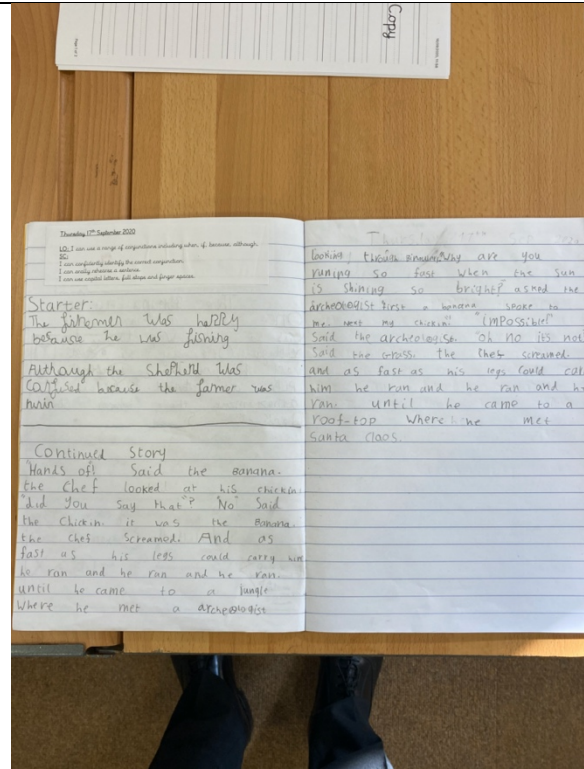 Copy
Thursday 17th September 2020
LO: I can use a range of conjunctions including when, if, because, although.
SC:
I can confidently identify the correct conjunction.
I can orally rehearse a sentence.
I can use capital letters, full stops and finger spaces.
Starter:
The fishermen was happy
because he was fishing
Although the shepherd was
confused because the farmer was
Continued Story
"Hands of! Said the Banana.
the chef looked at his chickin.
"did you say that"? "No" Said
the Chickin. it was the Banana.
the chef screamed. And as
fast as his legs could carry him
he ran and he ran and he ran.
until he came to a jungle
Where he met a archeologist
looking through "Why are you
runing so fast when the sun
is shining so bright?" asked the
archeologist first a banana spoke to
me. next my chickin! "impossible!"
Said the archeologist. "oh no its not
Said the grass. the chef screamed.
and as fast as his legs could
him he ran and he ran and he
ran. until he came to a
roof-top where he met
Santa claos.